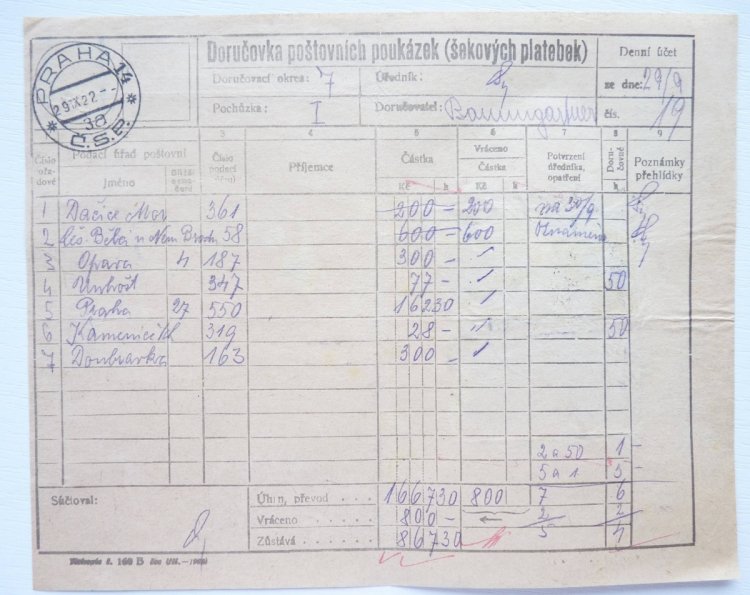 PRAHA 14
29.IX.22
3a
Č.S.P.
Doručovka poštovních poukázek (šekových platebek)
Denní účet
Doručovací okres: 7 Úředník:
ze dne: 29/9
Pochůzka: I Doručovatel: Baumgartner
čís. 19
Číslo řadové Podací úřad poštovní Číslo podací Příjemce Částka Vráceno Potvrzení úředníka, opatření Doručovné Poznámky přehlídky
Jméno Kč h Částka Kč h h
3 4 5 6 7 8 9
1 Dačice Mor 361 200 - 200 na 30/9
2 Čes. Bělá u Něm. Brodu 58 600 - 600 Oznámena
3 Opava 4 187 300 - "
4 Unhošť 347 77 - " 50
5 Praha 27 550 162 30 "
6 Kamenice 319 28 - " 50
7 Doubravka 163 300 - "
2 a 50 1 -
5 a 1 5 -
Sčítoval: Úhrn, převod 1667 30 800 7 6
Vráceno 800 - ← 2 2
Zůstává 867 30 5 4
160 B